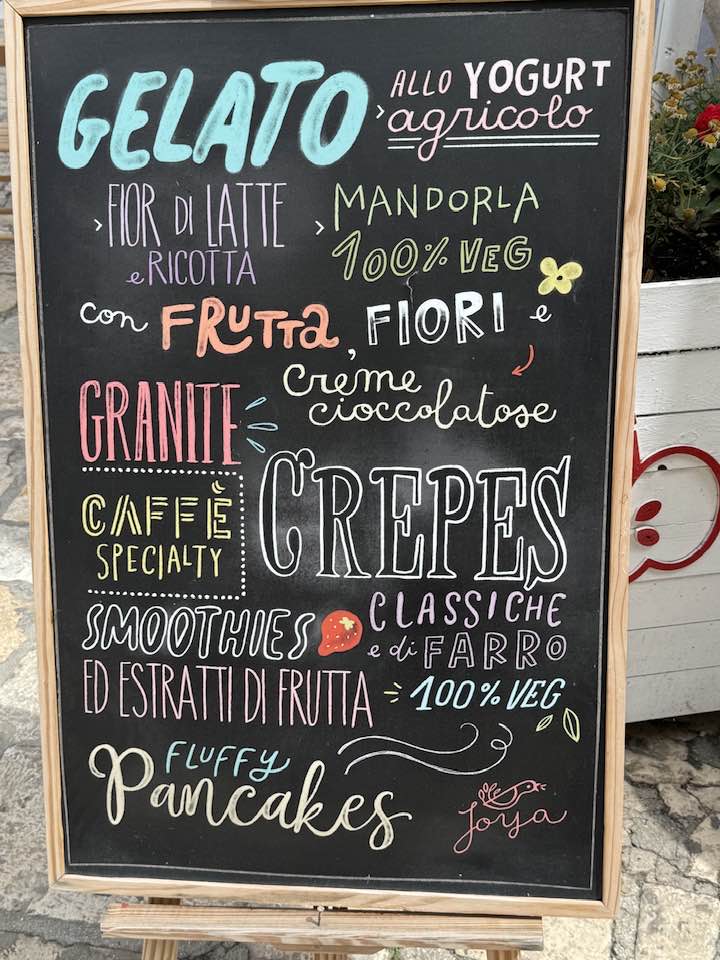 GELATO
› ALLO YOGURT
agricolo
› FIOR di LATTE
e RICOTTA
› MANDORLA
100% VEG
con FRUTTA, FIORI e
creme
cioccolatose
GRANITE
CAFFÈ
SPECIALTY
CREPES
CLASSICHE
e di FARRO
100% VEG
SMOOTHIES
ED ESTRATTI DI FRUTTA
FLUFFY
Pancakes
Joya